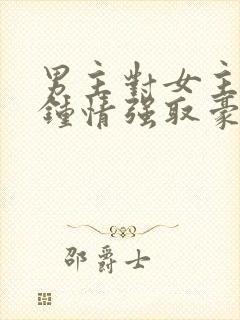 男主對女主
鍾情强取豪
邵爵士